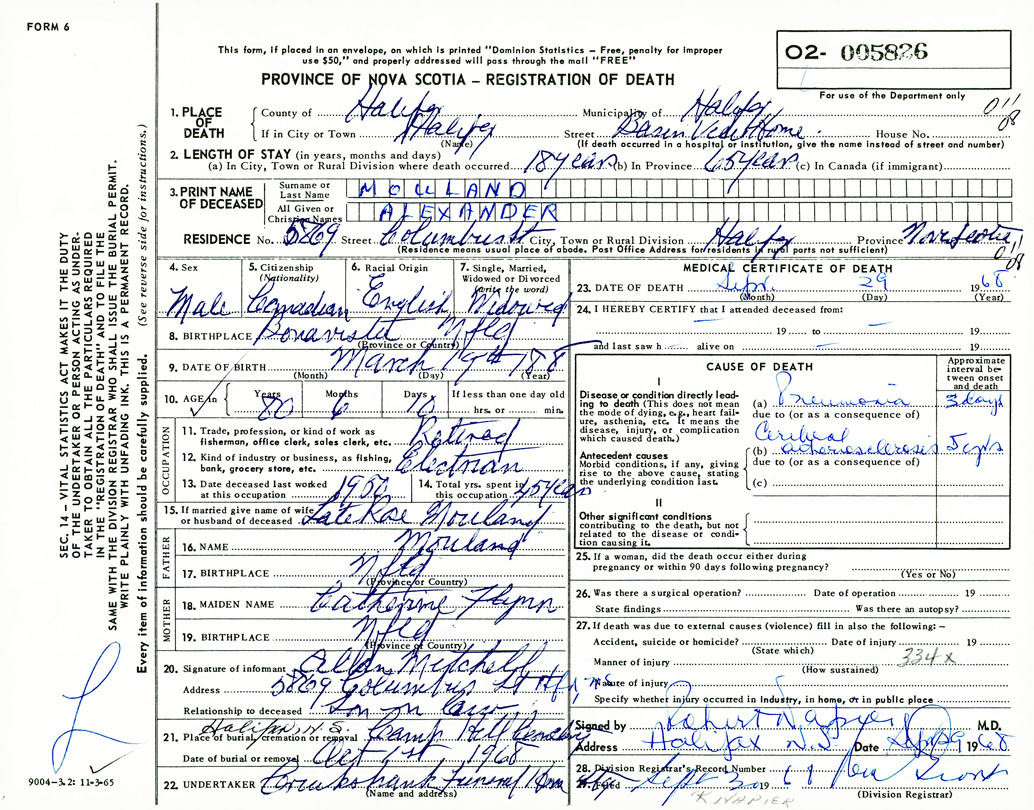 FORM 6
This form, if placed in an envelope, on which is printed "Dominion Statistics – Free, penalty for improper
use $50," and properly addressed will pass through the mail "FREE"
PROVINCE OF NOVA SCOTIA – REGISTRATION OF DEATH
O2- 005826
For use of the Department only
011
08
1. PLACE OF DEATH
County of Halifax Municipality of Halifax
If in City or Town Halifax Street Basin View Home House No.
(Name) (If death occurred in a hospital or institution, give the name instead of street and number)
2. LENGTH OF STAY (in years, months and days)
(a) In City, Town or Rural Division where death occurred 18 years (b) In Province 65 years (c) In Canada (if immigrant)
3. PRINT NAME OF DECEASED
Surname or Last Name MOULAND
All Given or Christian Names ALEXANDER
RESIDENCE No. 5869 Street Columbus st City, Town or Rural Division Halifax Province Nova Scotia
(Residence means usual place of abode. Post Office Address for residents of rural parts not sufficient)
011
08
4. Sex
Male
5. Citizenship (Nationality)
Canadian
6. Racial Origin
English
7. Single, Married, Widowed or Divorced (write the word)
Widowed
8. BIRTHPLACE Bonavista Nfld
(Province or Country)
9. DATE OF BIRTH March 19th 188
(Month) (Day) (Year)
10. AGE in Years 80 Months 6 Days 10 If less than one day old hrs. or min.
OCCUPATION
11. Trade, profession, or kind of work as fisherman, office clerk, sales clerk, etc. Retired
12. Kind of industry or business, as fishing, bank, grocery store, etc. Electrian
13. Date deceased last worked at this occupation 1950
14. Total yrs. spent in this occupation 45 years
15. If married give name of wife or husband of deceased Late Rose Mouland
FATHER
16. NAME Mouland
17. BIRTHPLACE Nfld
(Province or Country)
MOTHER
18. MAIDEN NAME Catherine Flynn
19. BIRTHPLACE Nfld
(Province or Country)
20. Signature of informant Allan Mitchell
Address 5869 Columbus St Hfx NS
Relationship to deceased Son in law
Halifax N.S.
21. Place of burial, cremation or removal Camp Hill Cemetery
Date of burial or removal Oct 1st 1968
22. UNDERTAKER Cruikshank Funeral Home
(Name and address)
MEDICAL CERTIFICATE OF DEATH
23. DATE OF DEATH Sept. 29 1968
(Month) (Day) (Year)
24. I HEREBY CERTIFY that I attended deceased from:
19 to 19
and last saw h alive on 19
CAUSE OF DEATH
Approximate interval between onset and death
I
Disease or condition directly leading to death (This does not mean the mode of dying, e.g., heart failure, asthenia, etc. It means the disease, injury, or complication which caused death.)
(a) Pneumonia 3 days
due to (or as a consequence of)
Antecedent causes
Morbid conditions, if any, giving rise to the above cause, stating the underlying condition last.
Cerebral
(b) atherosclerosis 5 yrs
due to (or as a consequence of)
(c)
II
Other significant conditions
contributing to the death, but not related to the disease or condition causing it.
25. If a woman, did the death occur either during
pregnancy or within 90 days following pregnancy?
(Yes or No)
26. Was there a surgical operation? Date of operation 19
State findings Was there an autopsy?
27. If death was due to external causes (violence) fill in also the following: –
Accident, suicide or homicide? Date of injury 19
(State which)
Manner of injury 334x
(How sustained)
Nature of injury
Specify whether injury occurred in Industry, in home, or in public place
Signed by Robert Napier M.D.
Address Halifax N.S. Date Sept 29 1968
28. Division Registrar's Record Number
29. Filed Sept 19
(Division Registrar)
R NAPIER
SEC. 14 – VITAL STATISTICS ACT MAKES IT THE DUTY
OF THE UNDERTAKER OR PERSON ACTING AS UNDER-
TAKER TO OBTAIN ALL THE PARTICULARS REQUIRED
IN THE "REGISTRATION OF DEATH" AND TO FILE THE
SAME WITH THE DIVISION REGISTRAR WHO SHALL ISSUE THE BURIAL PERMIT.
WRITE PLAINLY WITH UNFADING INK. THIS IS A PERMANENT RECORD.
Every item of information should be carefully supplied. (See reverse side for instructions.)
9004-3.2: 11-3-65